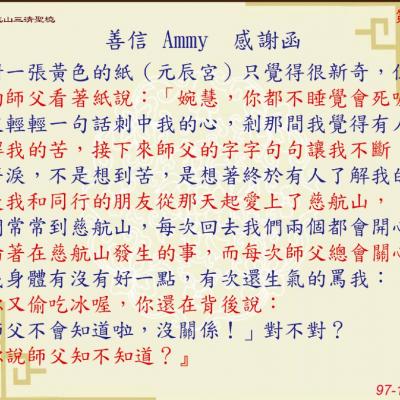 山三清聖境
善信 Ammy 感謝函
一張黃色的紙（元辰宮）只覺得很新奇，
師父看著紙說：「婉慧，你都不睡覺會死
輕輕一句話刺中我的心，剎那間我覺得有人
我的苦，接下來師父的字字句句讓我不斷
淚，不是想到苦，是想著終於有人了解我的
我和同行的朋友從那天起愛上了慈航山，
常常到慈航山，每次回去我們兩個都會開心
著在慈航山發生的事，而每次師父總會關心
身體有沒有好一點，有次還生氣的罵我：
又偷吃冰喔，你還在背後說：
師父不會知道啦，沒關係！」對不對？
說師父知不知道？』
97-1